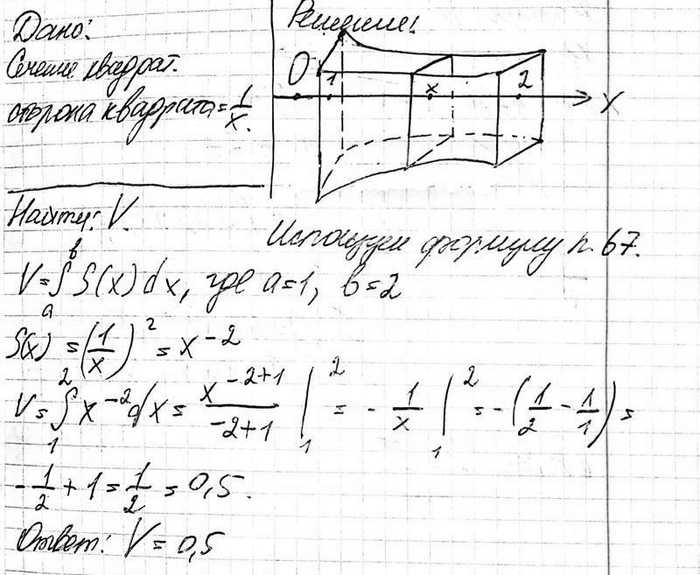 Дано:
Сечение квадрат.
сторона квадрата = 1/x.
Решение:
0 1 x 2 X
Найти: V.
Используем формулу п. 67.
V = ∫ₐᵇ S(x) dx, где a=1, b=2
S(x) = (1/x)² = x⁻²
V = ∫₁² x⁻² dx = x⁻²⁺¹/(-2+1) |₁² = - 1/x |₁² = -(1/2 - 1/1) =
- 1/2 + 1 = 1/2 = 0,5.
Ответ: V = 0,5